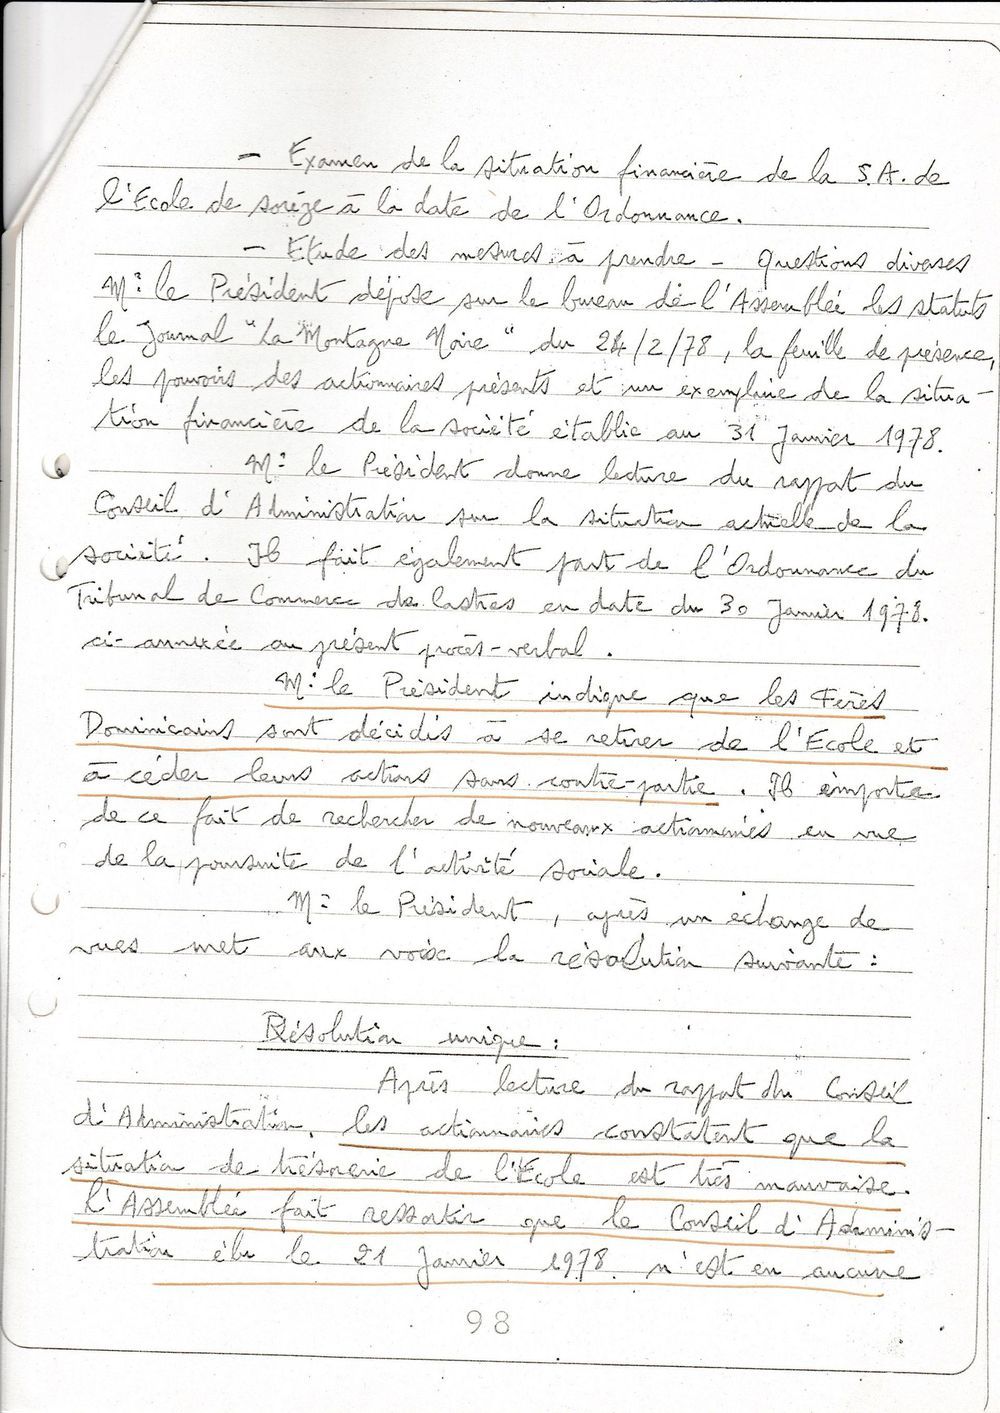 - Examen de la situation financière de la S.A. de
l'Ecole de sorèze à la date de l'Ordonnance.
- Etude des mesures à prendre - Questions diverses
Mr le Président dépose sur le bureau de l'Assemblée les statuts
le Journal "La Montagne Noire" du 24/2/78, la feuille de présence,
les pouvoirs des actionnaires présents et un exemplaire de la situa-
tion financière de la société établie au 31 Janvier 1978.
Mr le Président donne lecture du rapport du
Conseil d'Administration sur la situation actuelle de la
société. Il fait également part de l'Ordonnance du
Tribunal de Commerce de Castres en date du 30 Janvier 1978.
ci-annexée au présent procès-verbal.
Mr le Président indique que les Fères
Dominicains sont décidés à se retirer de l'Ecole et
à céder leurs actions sans contre-partie. Il importe
de ce fait de rechercher de nouveaux actionnaires en vue
de la poursuite de l'activité sociale.
Mr le Président, après un échange de
vues met aux voix la résolution suivante :
Résolution unique :
Après lecture du rapport du Conseil
d'Administration, les actionnaires constatent que la
situation de trésorerie de l'Ecole est très mauvaise.
L'Assemblée fait ressortir que le Conseil d'Adminis-
tration élu le 21 Janvier 1978 n'est en aucune
98